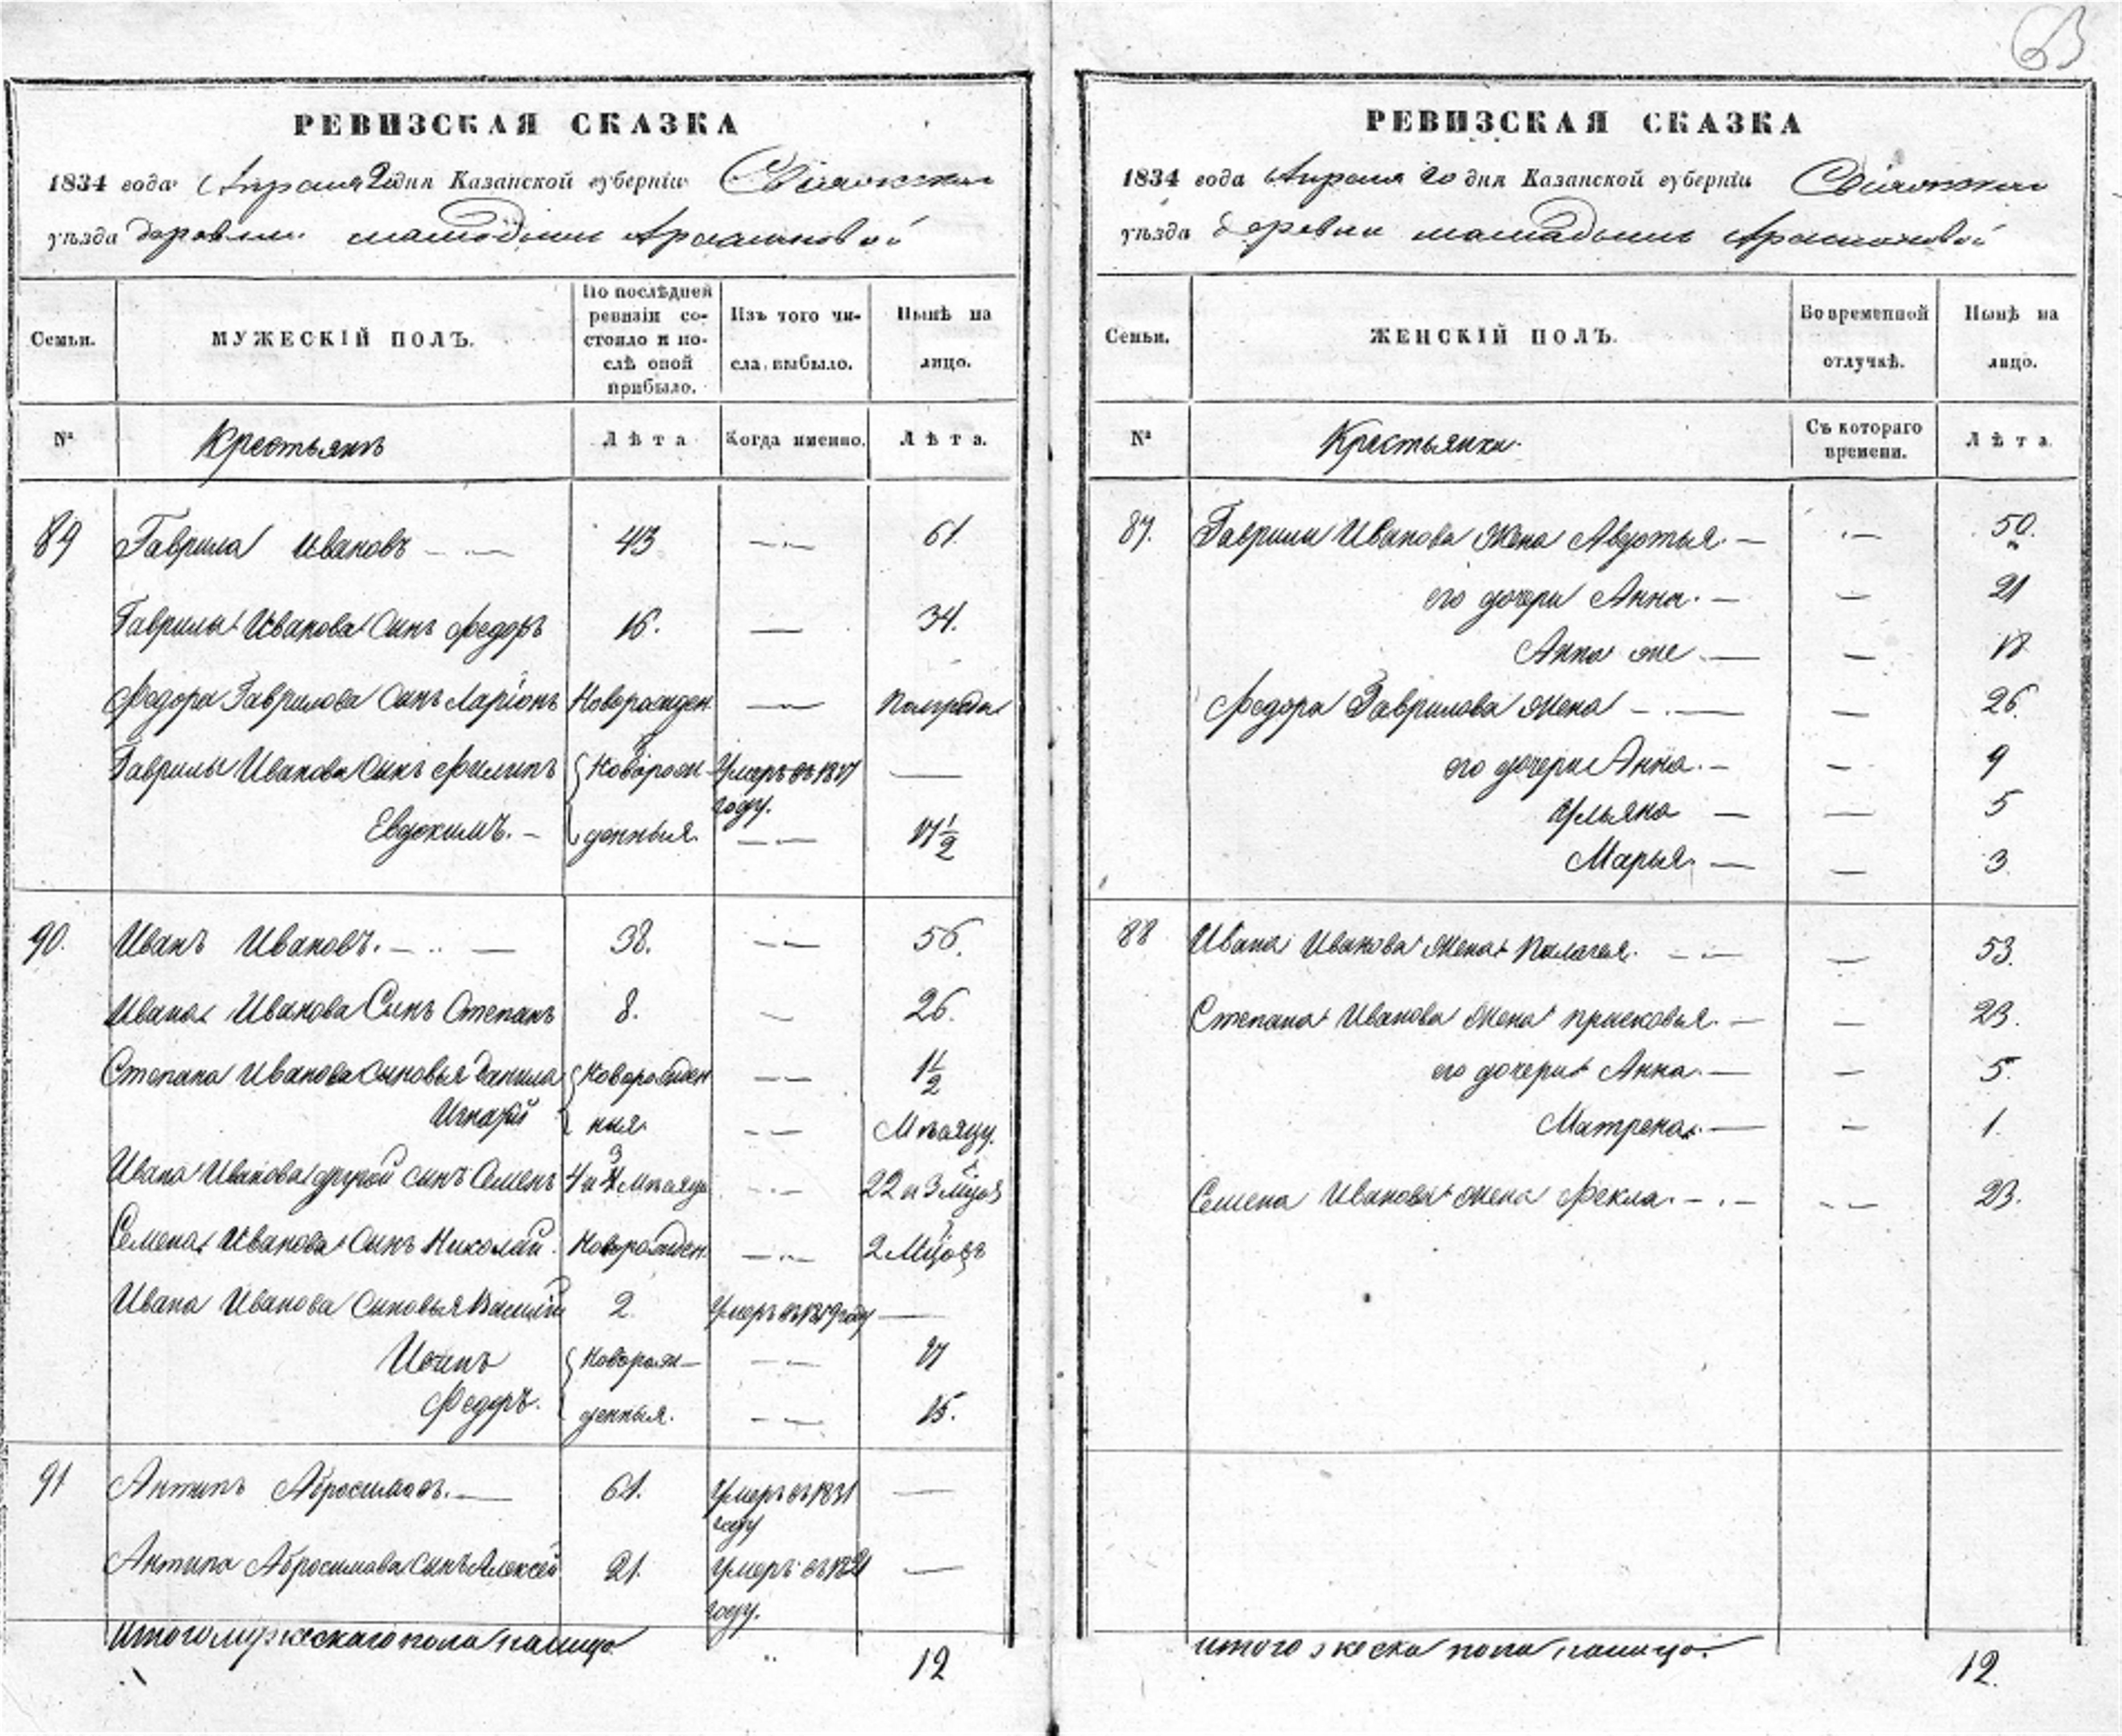 РЕВИЗСКАЯ СКАЗКА
1834 года Апреля дня Казанской губерніи
уѣзда деревни
Семьи.
МУЖЕСКІЙ ПОЛЪ.
По послѣдней ревизіи состояло и послѣ оной прибыло.
Изъ чого числа выбыло.
Нынѣ на лицо.
№ Крестьянъ Лѣта Когда именно. Лѣта.
89 Гаврила Ивановъ 43 — 61.
Гаврилы Иванова Сынъ Федоръ 16. — 34.
Федора Гаврилова Сынъ Ларіонъ Новорожден — полгода
Гаврилы Иванова Сынъ Филипъ Новорож- Умеръ въ году. —
Евдокимъ. — денныя. —
90. Иванъ Ивановъ. — 38. — 56.
Ивана Иванова Сынъ Степанъ 8. — 26.
Степана Иванова сыновья Данила Новорожден — 1 1/2
ныя — Мѣсяцу.
Ивана Иванова другой сынъ Семенъ 4 и Мѣсяца — 22 и 3 Мцов
Семена Иванова Сынъ Николай. Новорожден — 2 Мцовъ
Ивана Иванова Сыновья Василій 2. Умеръ въ 1819 году —
Новорож- — 17
Федоръ. денныя. — 15.
91 Антипъ Абросимовъ. — 61. Умеръ въ 1831 году —
Антипа Абросимова Сынъ Алексей 21. Умеръ въ году. —
Итого мужескаго пола налицо 12
РЕВИЗСКАЯ СКАЗКА
1834 года Апреля 20 дня Казанской губерніи
уѣзда деревни
Семьи.
ЖЕНСКІЙ ПОЛЪ.
Во временной отлучкѣ.
Нынѣ на лицо.
№ Крестьянки. Съ котораго времени. Лѣта.
87. Гаврилы Иванова Жена Авдотья. — 50.
его дочери Анна. — 21
Анна же. — 18
Федора Гаврилова жена — 26.
его дочери Анна. — 9
Ульяна — 5
Марья. — 3.
88 Ивана Иванова жена Палагея. — 53.
Степана Иванова жена Прасковья. — 23.
его дочери Анна. — 5.
Матрена. — 1.
Семена Иванова жена Фекла. — 23.
итого женска пола налицо. 12.